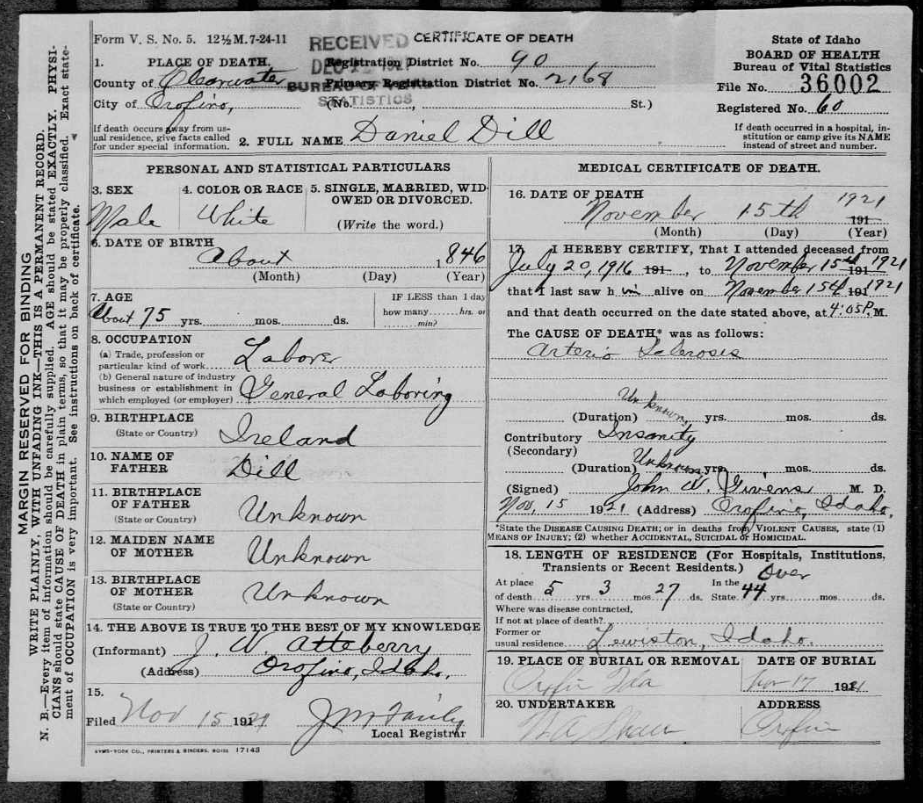 MARGIN RESERVED FOR BINDING
WRITE PLAINLY, WITH UNFADING INK—THIS IS A PERMANENT RECORD.
N. B.—Every item of information should be carefully supplied. AGE should be stated EXACTLY. PHYSI-
CIANS should state CAUSE OF DEATH in plain terms, so that it may be properly classified. Exact state-
ment of OCCUPATION is very important. See instructions on back of certificate.
Form V. S. No. 5. 12½M. 7-24-11
RECEIVED
BUREAU
STATISTICS
CERTIFICATE OF DEATH
State of Idaho
BOARD OF HEALTH
Bureau of Vital Statistics
1. PLACE OF DEATH. Registration District No. 90
County of Clearwater Primary Registration District No. 2168
File No. 36002
City of Orofino, (No. , St.)
Registered No. 60
If death occurs away from us-
ual residence, give facts called
for under special information.
2. FULL NAME Daniel Dill
If death occurred in a hospital, in-
stitution or camp give its NAME
instead of street and number.
PERSONAL AND STATISTICAL PARTICULARS
3. SEX Male
4. COLOR OR RACE White
5. SINGLE, MARRIED, WID-
OWED OR DIVORCED.
(Write the word.)
6. DATE OF BIRTH
About 1846
(Month) (Day) (Year)
7. AGE
About 75 yrs. mos. ds.
IF LESS than 1 day
how many hrs. or
min?
8. OCCUPATION
(a) Trade, profession or
particular kind of work Laborer
(b) General nature of industry
business or establishment in
which employed (or employer) General Laboring
9. BIRTHPLACE
(State or Country) Ireland
10. NAME OF
FATHER Dill
11. BIRTHPLACE
OF FATHER
(State or Country) Unknown
12. MAIDEN NAME
OF MOTHER Unknown
13. BIRTHPLACE
OF MOTHER
(State or Country) Unknown
14. THE ABOVE IS TRUE TO THE BEST OF MY KNOWLEDGE
(Informant) J. W. Atteberry
(Address) Orofino, Idaho.
15.
Filed Nov 15 1921
Local Registrar
SYMS-YORK CO., PRINTERS & BINDERS, BOISE 17143
MEDICAL CERTIFICATE OF DEATH.
16. DATE OF DEATH
November 15th 1921 191
(Month) (Day) (Year)
17. I HEREBY CERTIFY, That I attended deceased from
July 20, 1916 191 , to November 15th 191 1921
that I last saw h im alive on November 15th 191 1921
and that death occurred on the date stated above, at 4:05 P. M.
The CAUSE OF DEATH* was as follows:
Arterio Sclerosis
(Duration) Unknown yrs. mos. ds.
Contributory Insanity
(Secondary)
(Duration) Unknown yrs. mos. ds.
(Signed) John W. Givens M. D.
Nov, 15 1921 (Address) Orofino, Idaho.
*State the DISEASE CAUSING DEATH; or in deaths from VIOLENT CAUSES, state (1)
MEANS OF INJURY; (2) whether ACCIDENTAL, SUICIDAL or HOMICIDAL.
18. LENGTH OF RESIDENCE (For Hospitals, Institutions,
Transients or Recent Residents.)
At place of death 5 yrs 3 mos 27 ds. In the State Over 44 yrs. mos. ds.
Where was disease contracted,
If not at place of death?
Former or
usual residence Lewiston, Idaho.
19. PLACE OF BURIAL OR REMOVAL
Orofino Ida
DATE OF BURIAL
Nov 17 1921
20. UNDERTAKER
ADDRESS
Orofino